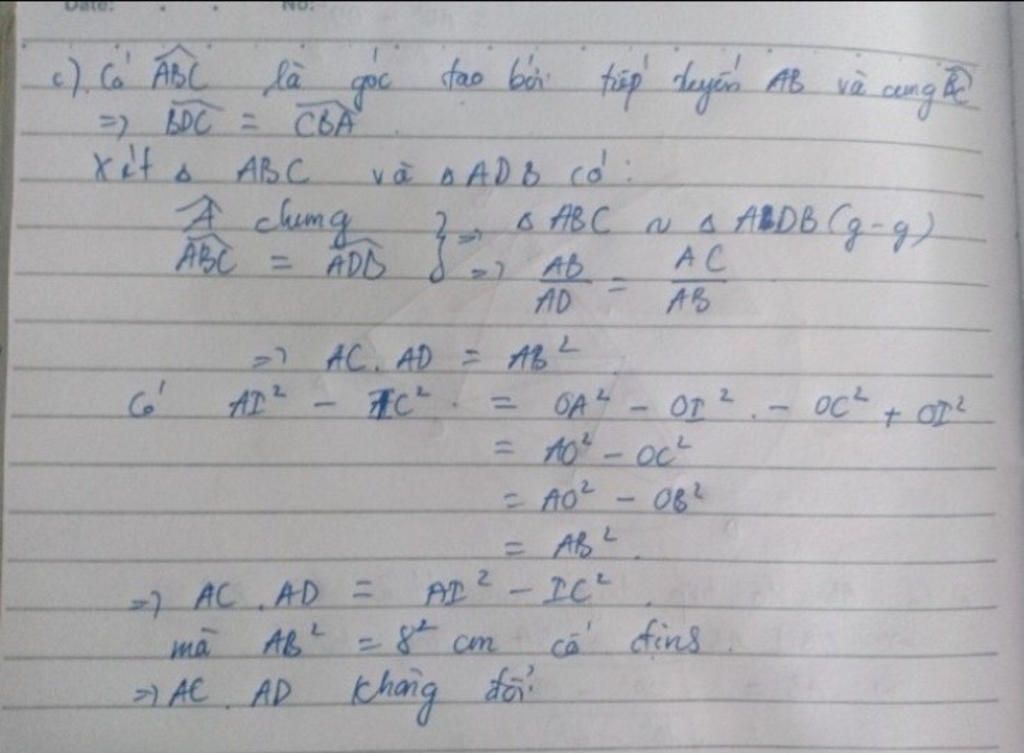 Date: . . No:
c). Có ABC là góc tạo bởi tiếp tuyến AB và cung BC
=> BDC = CBA
Xét Δ ABC và Δ ADB có:
A chung } => Δ ABC ~ Δ ADB (g-g)
ABC = ADB } => AB/AD = AC/AB
=> AC . AD = AB²
Có AI² - IC² = OA² - OI² - OC² + OI²
= AO² - OC²
= AO² - OB²
= AB².
=> AC . AD = AI² - IC².
mà AB² = 8² cm cố định.
=> AC . AD không đổi.